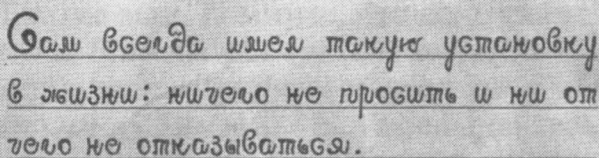 Сам всегда имел такую установку
в жизни: ничего не просить и ни от
чего не отказываться.